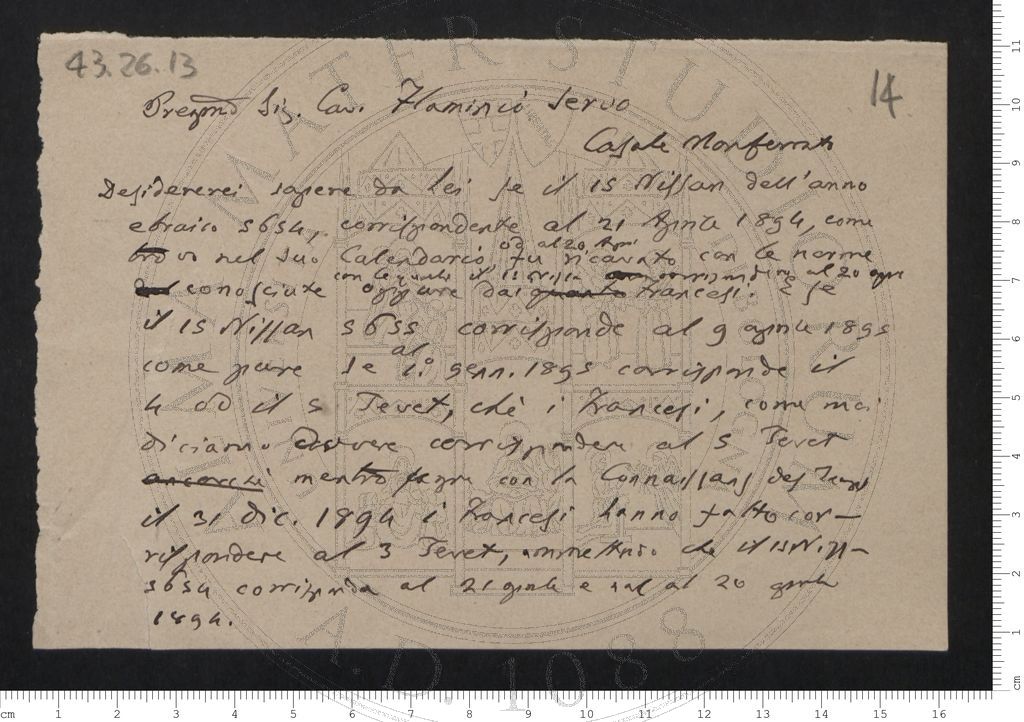 43.26.13
14
Pregmo Sig. Cav. Flaminio Servo
Casale Monferrato
Desidererei sapere da Lei se il 15 Nissan dell'anno
ebraico 5654, corrispondente al 21 Aprile 1894, come
od al 20 Apri
trovo nel suo Calendario fu ricavato con le norme
con le quali il 15 Nissa corrispondere al 20 apr
conosciute oppure dai Francesi. E se
il 15 Nissan 5655 corrisponde al 9 aprile 1895
al
come pure se 1° genn. 1895 corrisponde il
4 od il 5 Tevet, chè i Francesi, come noi
diciamo dovere corrispondere al 5 Tevet
ancorchè mentre con la Connaissans des Temps
il 31 dic. 1894 i Francesi hanno fatto cor-
rispondere al 3 Tevet, ammettendo che il 15 Niss-
5654 corrisponda al 21 aprile e non al 20 aprile
1894.
ALMA MATER STUDIORUM
A.D. 1088
cm 1 2 3 4 5 6 7 8 9 10 11 12 13 14 15 16
11
10
9
8
7
6
5
4
3
2
1
cm